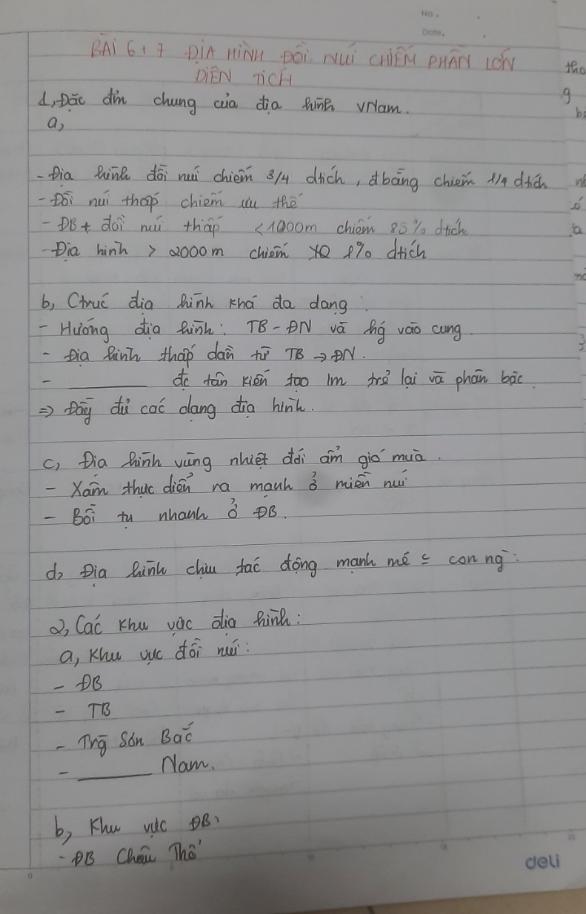 No.
Date.
BÀI 6+7 ĐỊA HÌNH ĐỒI NÚI CHIẾM PHẦN LỚN
DIỆN TÍCH
1, Đặc đ'm chung của địa hình VNam.
a,
- Địa hình đồi núi chiếm 3/4 dtích, đbằng chiếm 1/4 dtích
- Đồi núi thấp chiếm ưu thế
- ĐB + đồi núi thấp <1000m chiếm 85% dtích
- Địa hình > 2000m chiếm 1% dtích
b, Ctrúc địa hình khá đa dạng
- Hướng địa hình: TB-ĐN và hg vòng cung.
- Địa hình thấp dần từ TB → ĐN.
- ______ đc tân kiến tạo lm trẻ lại và phân bậc
⇒ Đầy đủ các dạng địa hình.
c, Địa hình vùng nhiệt đới ẩm gió mùa.
- Xâm thực diễn ra mạnh ở miền núi
- Bồi tụ nhanh ở ĐB.
d, Địa hình chịu tác động mạnh mẽ = con ng`:
2, Các khu vực địa hình:
a, Khu vực đồi núi:
- ĐB
- TB
- Trg Sơn Bắc
- ______ Nam.
b, Khu vực ĐB:
- ĐB Châu Thổ
deli